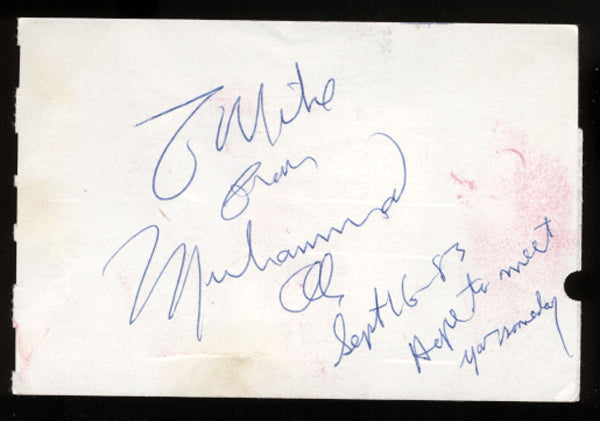 To Mike
From
Muhammad
Ali
Sept 16-83
Hope to meet
you someday